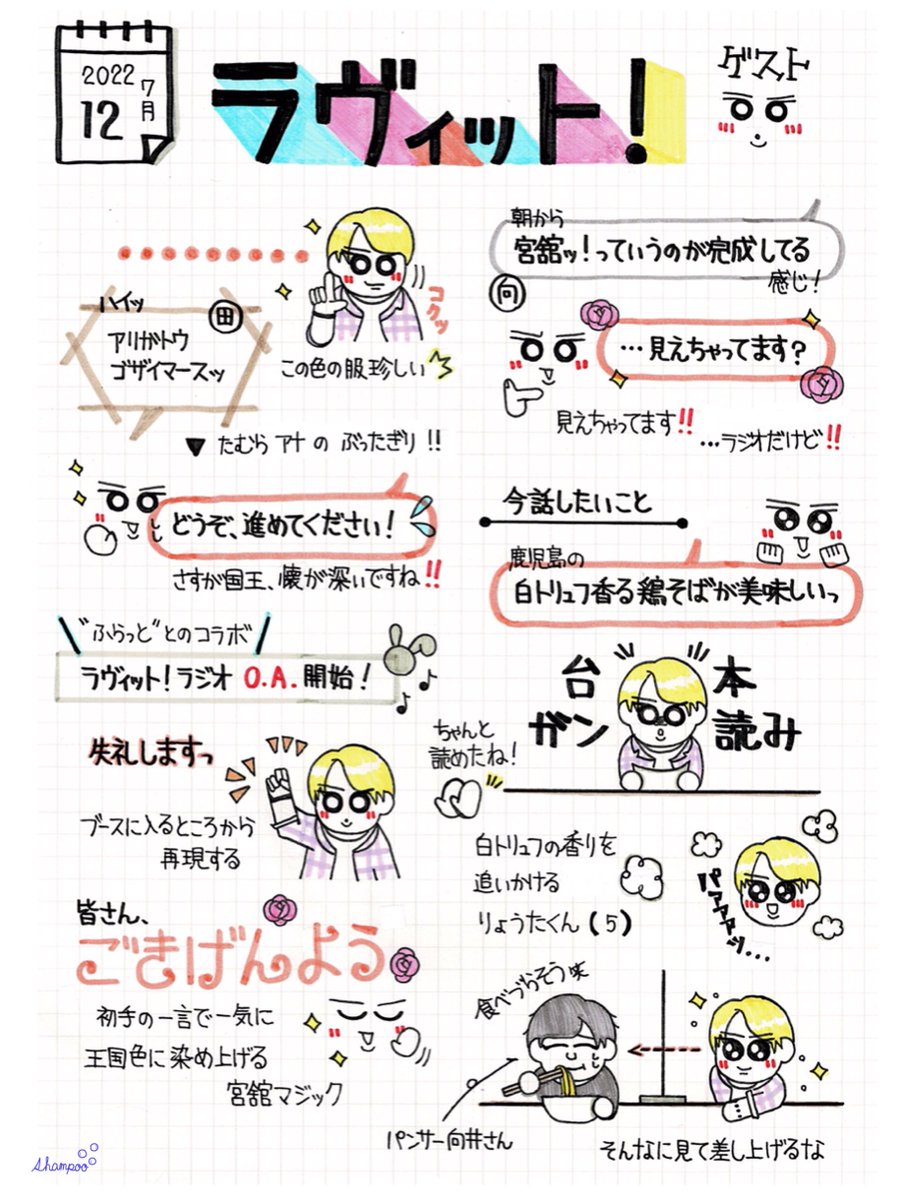 2022
7月
12
ラヴィット！
ゲスト
コクッ
この色の服珍しい
ハイッ
田
アリガトウ
ゴザイマースッ
▼ たむらアナの ぶったぎり!!
どうぞ、進めてください！
さすが国王、懐が深いですね!!
"ふらっと"とのコラボ
ラヴィット！ラジオ O.A.開始！
失礼しますっ
ブースに入るところから
再現する
皆さん、
ごきげんよう
初手の一言で一気に
王国色に染め上げる
宮舘マジック
朝から
宮舘ッ！っていうのが完成してる
感じ！
向
…見えちゃってます？
見えちゃってます!!
…ラジオだけど!!
今話したいこと
鹿児島の
白トリュフ香る鶏そばが美味しいっ
台本
ガン読み
ちゃんと
読めたね！
白トリュフの香りを
追いかける
りょうたくん(5)
パァァァッ...
食べづらそう味
パンサー向井さん
そんなに見て差し上げるな
Shampoo